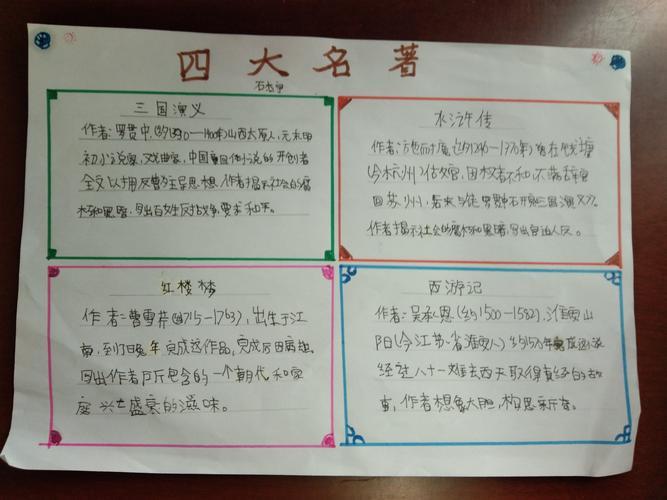 四大名著
三国演义
作者:罗贯中,(约1330—1400年)山西太原人,元末明
初小说家,戏曲家,中国章回体小说的开创者
全文以拥反曹为主导思想,作者揭示社会的腐
朽和黑暗,写出百姓反战争,要求和平。
水浒传
作者:施耐庵(约1296—1370年)曾在钱塘
(今杭州)做官,因权者不和,不满辞官
回苏州,后来与徒
作者揭示社会的腐朽和黑暗,写出官逼人反。
红楼梦
作者:曹雪芹(1715—1763),出生于江
南,到了晚年完成这作品,完成后因病逝。
写出作者所包含的一个朝代和家
庭兴亡盛衰的滋味。
西游记
作者:吴承恩(约1500—1582),淮安山
阳(今江苏省淮安人)
经过八十一难去西天取得真经的故
事,作者想象大胆,构思新奇。